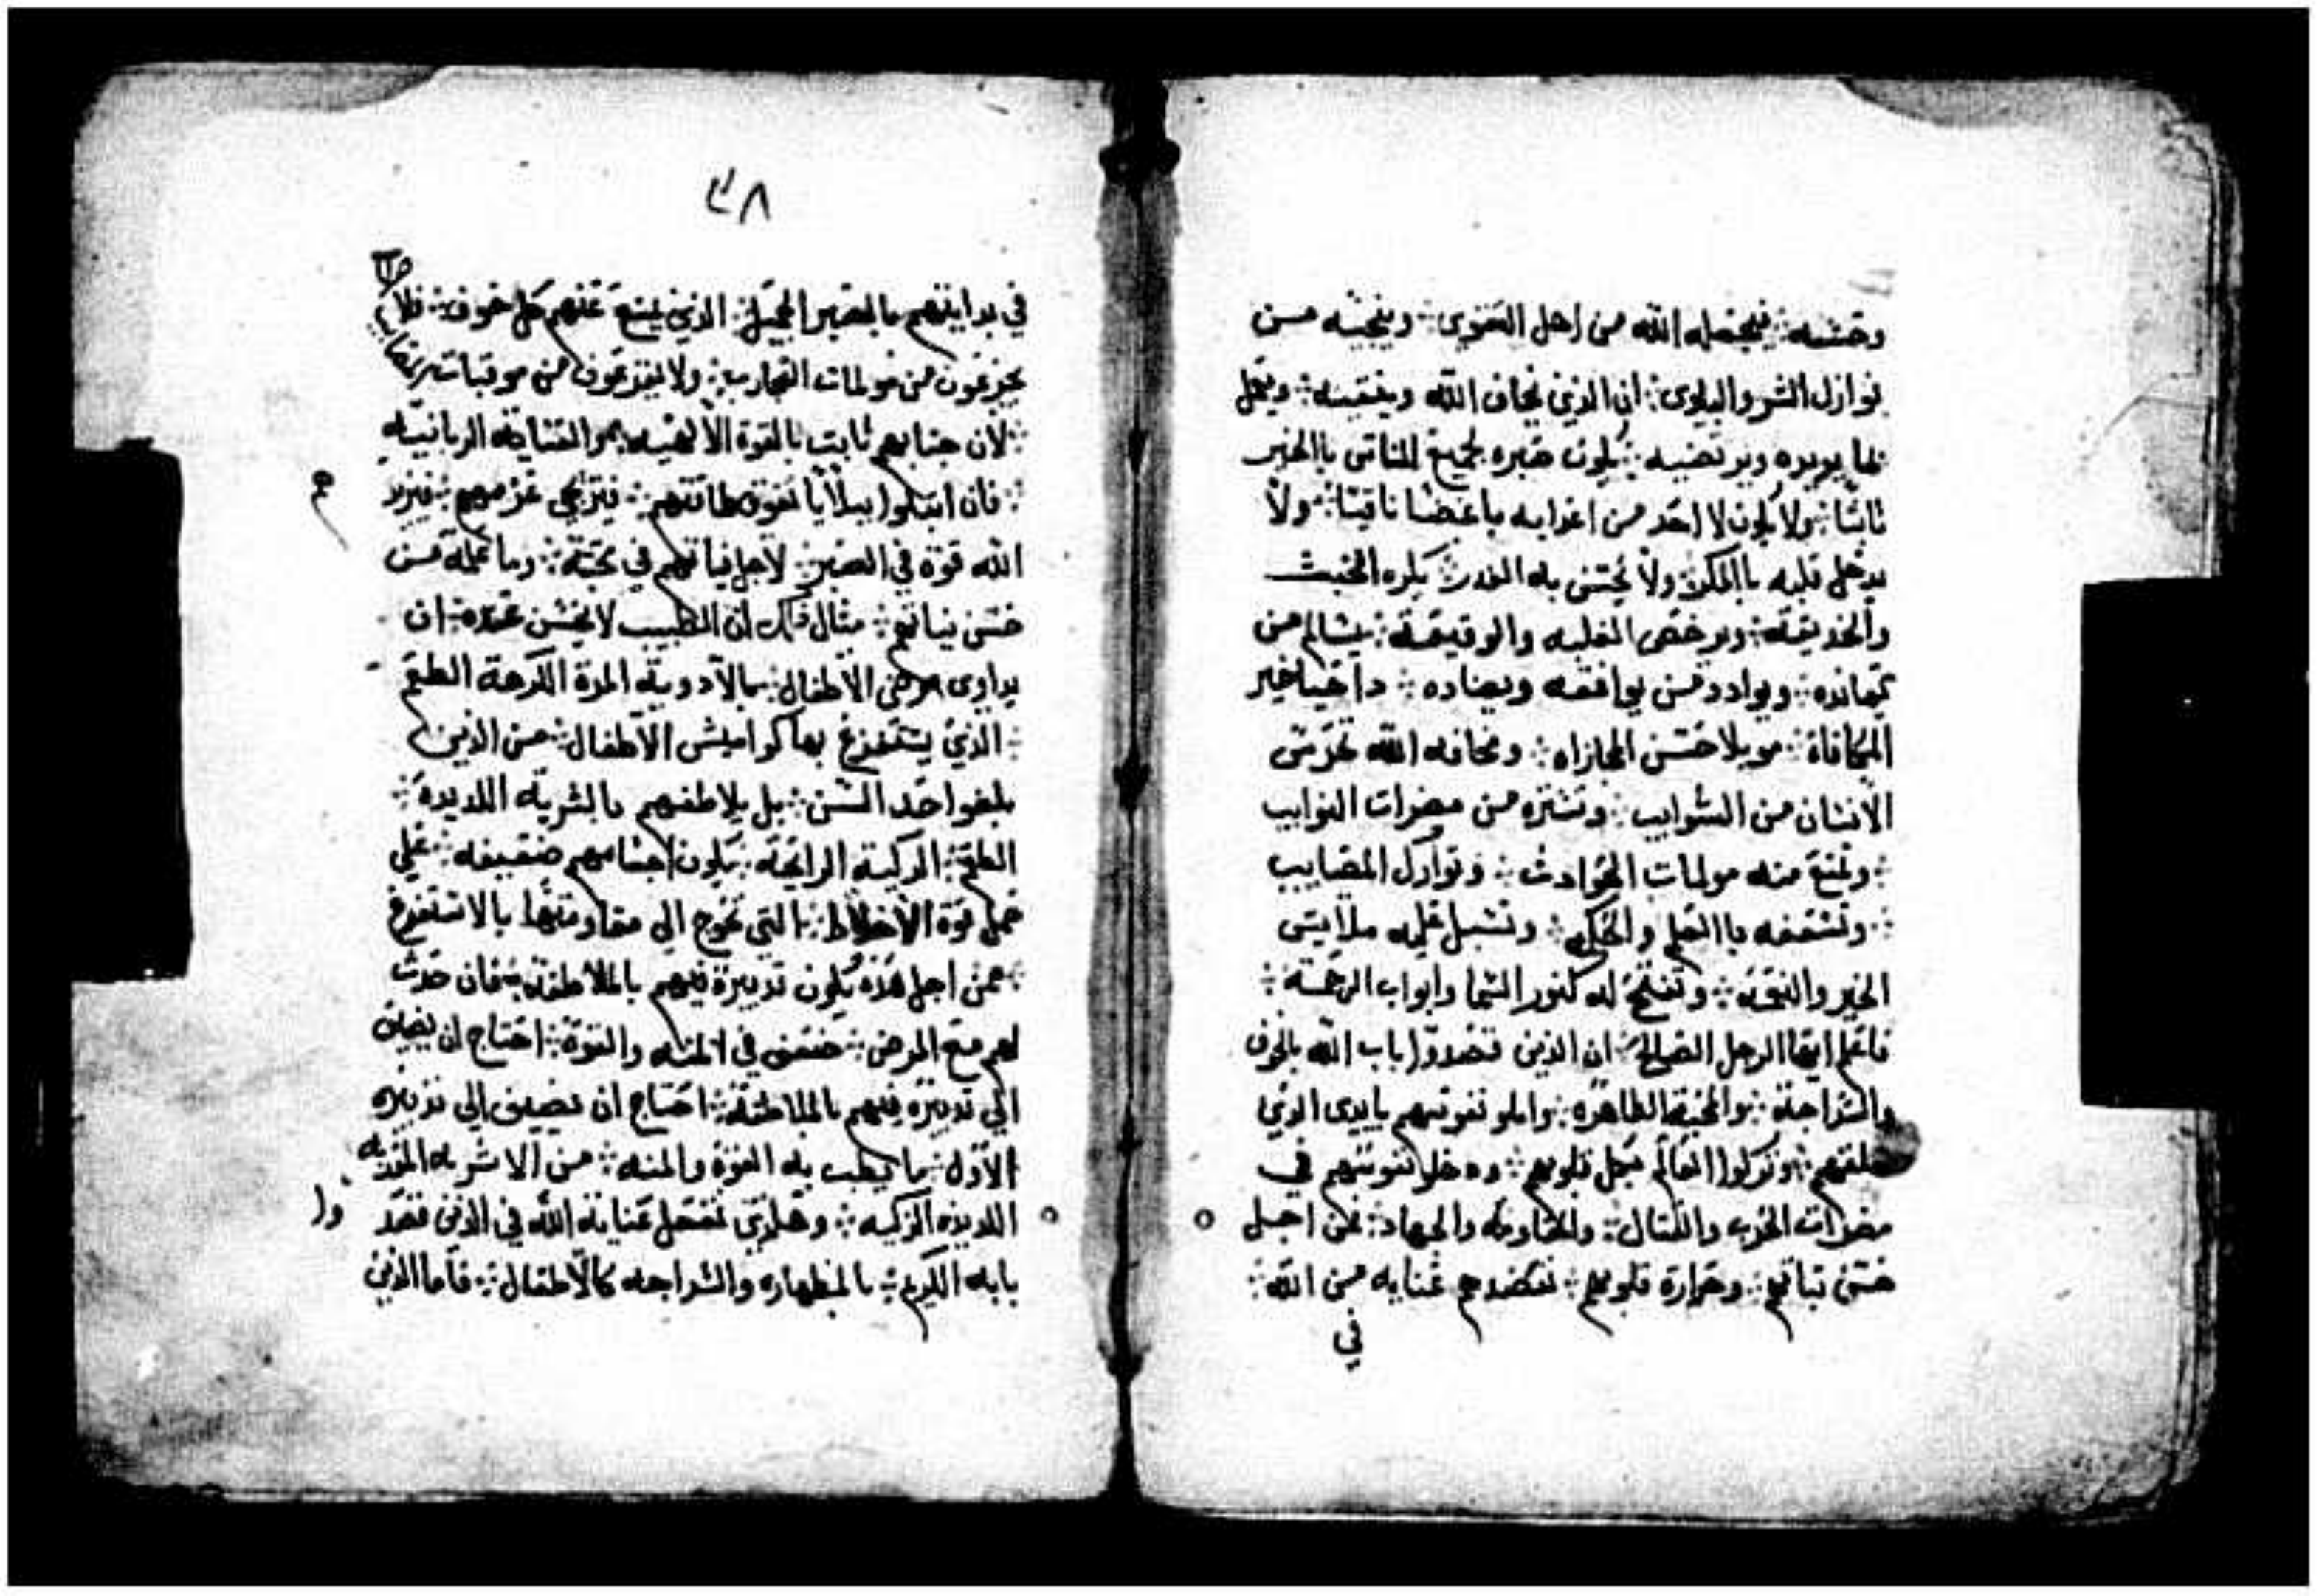 وخشيه ∴ فيجعله الله من اهل التقوى ∴ وينجيه من
نوازل الشر والبلوى ∴ ان الذي يخاف الله ويتقيه ∴ ويعمل
بما يريده ويرتضيه ∴ يكون خبره لجميع الناس بالخير
ثابتا ∴ ولا يكون لاحد من اعدايه باغضا ∴ ولا
يدخل قلبه بالمكر ∴ ولا يحتسي به الغدر ∴ يكره الخبث
والخديعه ∴ ويرخص الغلبه والوقيعة ∴ يسالم من
يعانده ∴ ويوادد من يوافقه ويضاده ∴ داخيا خير
المكافاة ∴ موملا حسن المجازاه ∴ ومخافه الله تحرس
الانسان من الشوايب ∴ وتنتزه من مضرات النوايب
∴ وتمنع منه مولمات الحوادث ∴ ونوازل المصايب
∴ وتسعفه باالعلم والحكم ∴ وتسبل عليه ملابس
الخير والنعمه ∴ وتفتح له كنوز السما وابواب الرحمة ∴
فاعلم ايها الرجل الصالح ∴ ان الذين قصدوا باب الله بالخوف
والسداجة ∴ والمحبة الطاهره ∴ واملو نفوسهم بايدي الذي
خلقهم ∴ وتركوا العالم قبل قلوبهم ∴ ودخلو بنفوسهم في
مضرات الحرب والقتال ∴ والمقاومه والجهاد ∴ فمن اجل
حسن نياتهم ∴ وحرارة قلوبهم ∴ تعضدهم عنايه من الله ∴
في
٣٨
في بدايتهم بالصبر الجميل ∴ الذي يمنع عنهم كل خوف ∴ فلا
يجزعون من مولمات التجارب ∴ ولا يفزعون من موقبات
∴ لان جنابهم ثابت بالقوة الالهيه ∴ والعناية الربانيه
∴ فان ابتلوا ببلايا تفوق طاقتهم ∴ فيترجى عزمهم ∴ فيزيد
الله قوة في الصبر ∴ لاجل نياتهم في محبته ∴ وما عمله من
حسن نياتهم ∴ مثال ذلك ان الطبيب لا يحسن عنده ∴ ان
يداوي مرضى الاطفال ∴ بالادوية المرة الكرهة الطعم
∴ الذي يستفرغ بها كواميس الاطفال ∴ من الذين
بلغوا حد السن ∴ بل يلاطفهم بالشربة اللديده ∴
الطعم ∴ الزكية الرايحة ∴ يكون اجسامهم ضعيفه ∴ على
حمل قوة الاخلاط ∴ التي تحوج الى مقاومتها بالاستفرغ
∴ فمن اجل هذه يكون تدبيره فيهم بالملاطفة ∴ فان حدث
لهم مع المرض ∴ ضعف في المنه والقوة ∴ احتاج ان يضيف
الى تدبيره فيهم بالملاطفة ∴ احتاج ان يضيف الى تدبيره
الاول ∴ ما يطب به القوة والمنه ∴ من الاشربه المقويه
اللديده الزكيه ∴ وهكذى تفعل عناية الله في الذين قصد
وا
بابه الكريم ∴ بالطهاره والسداجه كالاطفال ∴ فاما الذين